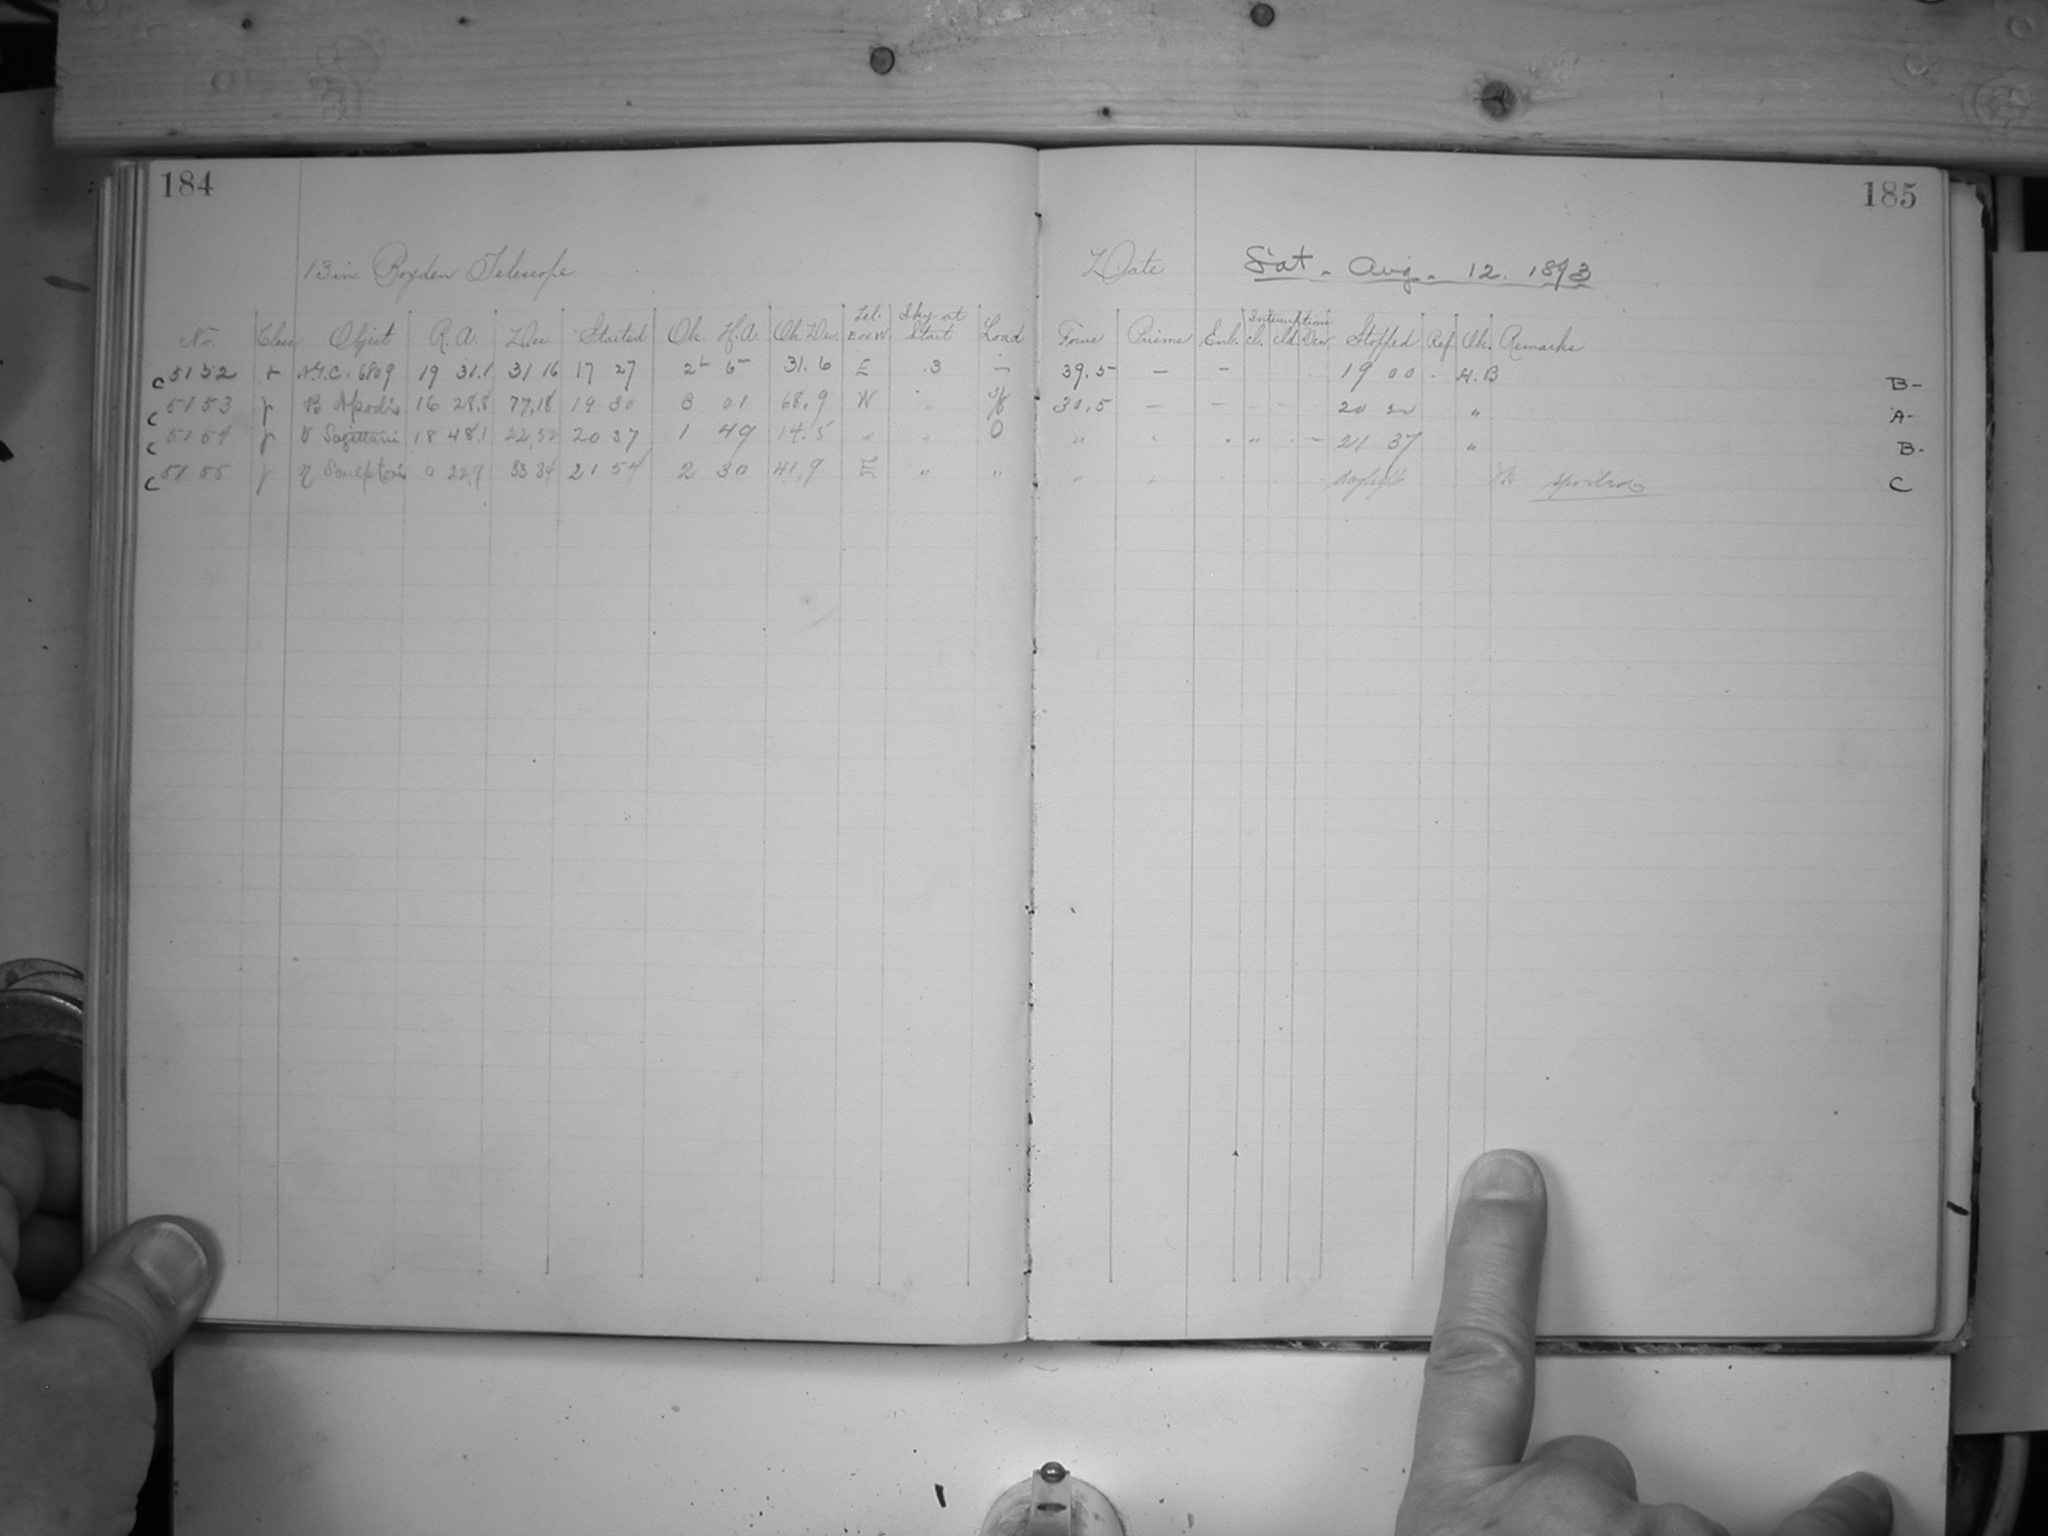 184
13 in Boyden Telescope
No. Class Object R.A. Dec. Started Ob. H.A. Ob. Dec. Tel. E or W Sky at Start Load
c 5152 N.G.C. 6809 19 31.1 31 16 17 27 2h 6m 31.6 E .3 —
c 5153 B Apodis 16 28.8 77.18 19 30 3 01 68.9 W " 3/8
c 5154 V Sagittarii 18 48.1 22.52 20 37 1 49 14.5 " " 0
c 5155 η Sculptoris 0 22.9 33 34 21 54 2 30 41.9 E " "
185
Date Sat. Aug. 12. 1893
Focus Prisms Enl. Interruptions Cl. Cld. Dew Stopped Ref Ob. Remarks
39.5 — — 19 00 - H.B B-
30.5 — — 20 " A-
" " " " — 21 37 " B-
" daylight spoiled C